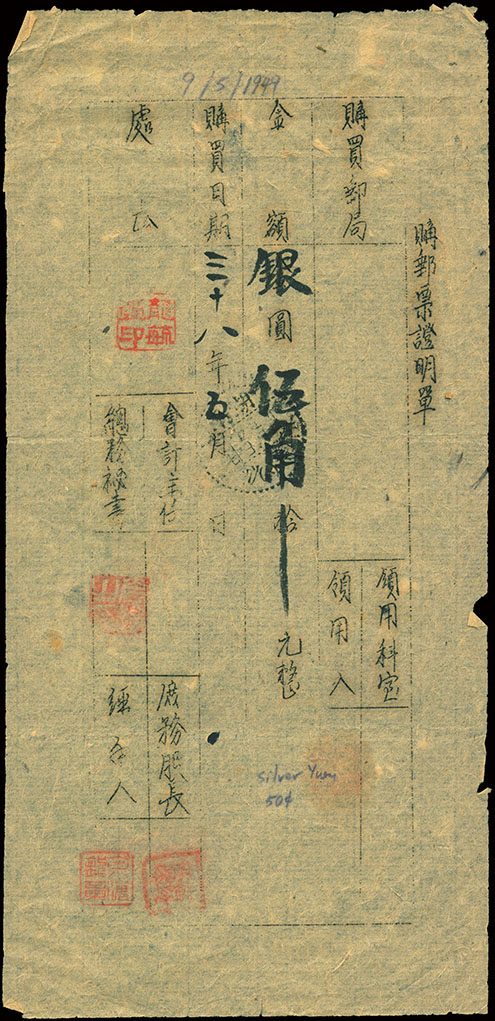 9/5/1949
購郵票證明單
購買郵局
領用科室
領用人
金額銀圓伍角拾元整
購買日期三十八年五月日
處長
會計主任
總務秘書
庶務股長
經手人
Silver Yuen
50¢